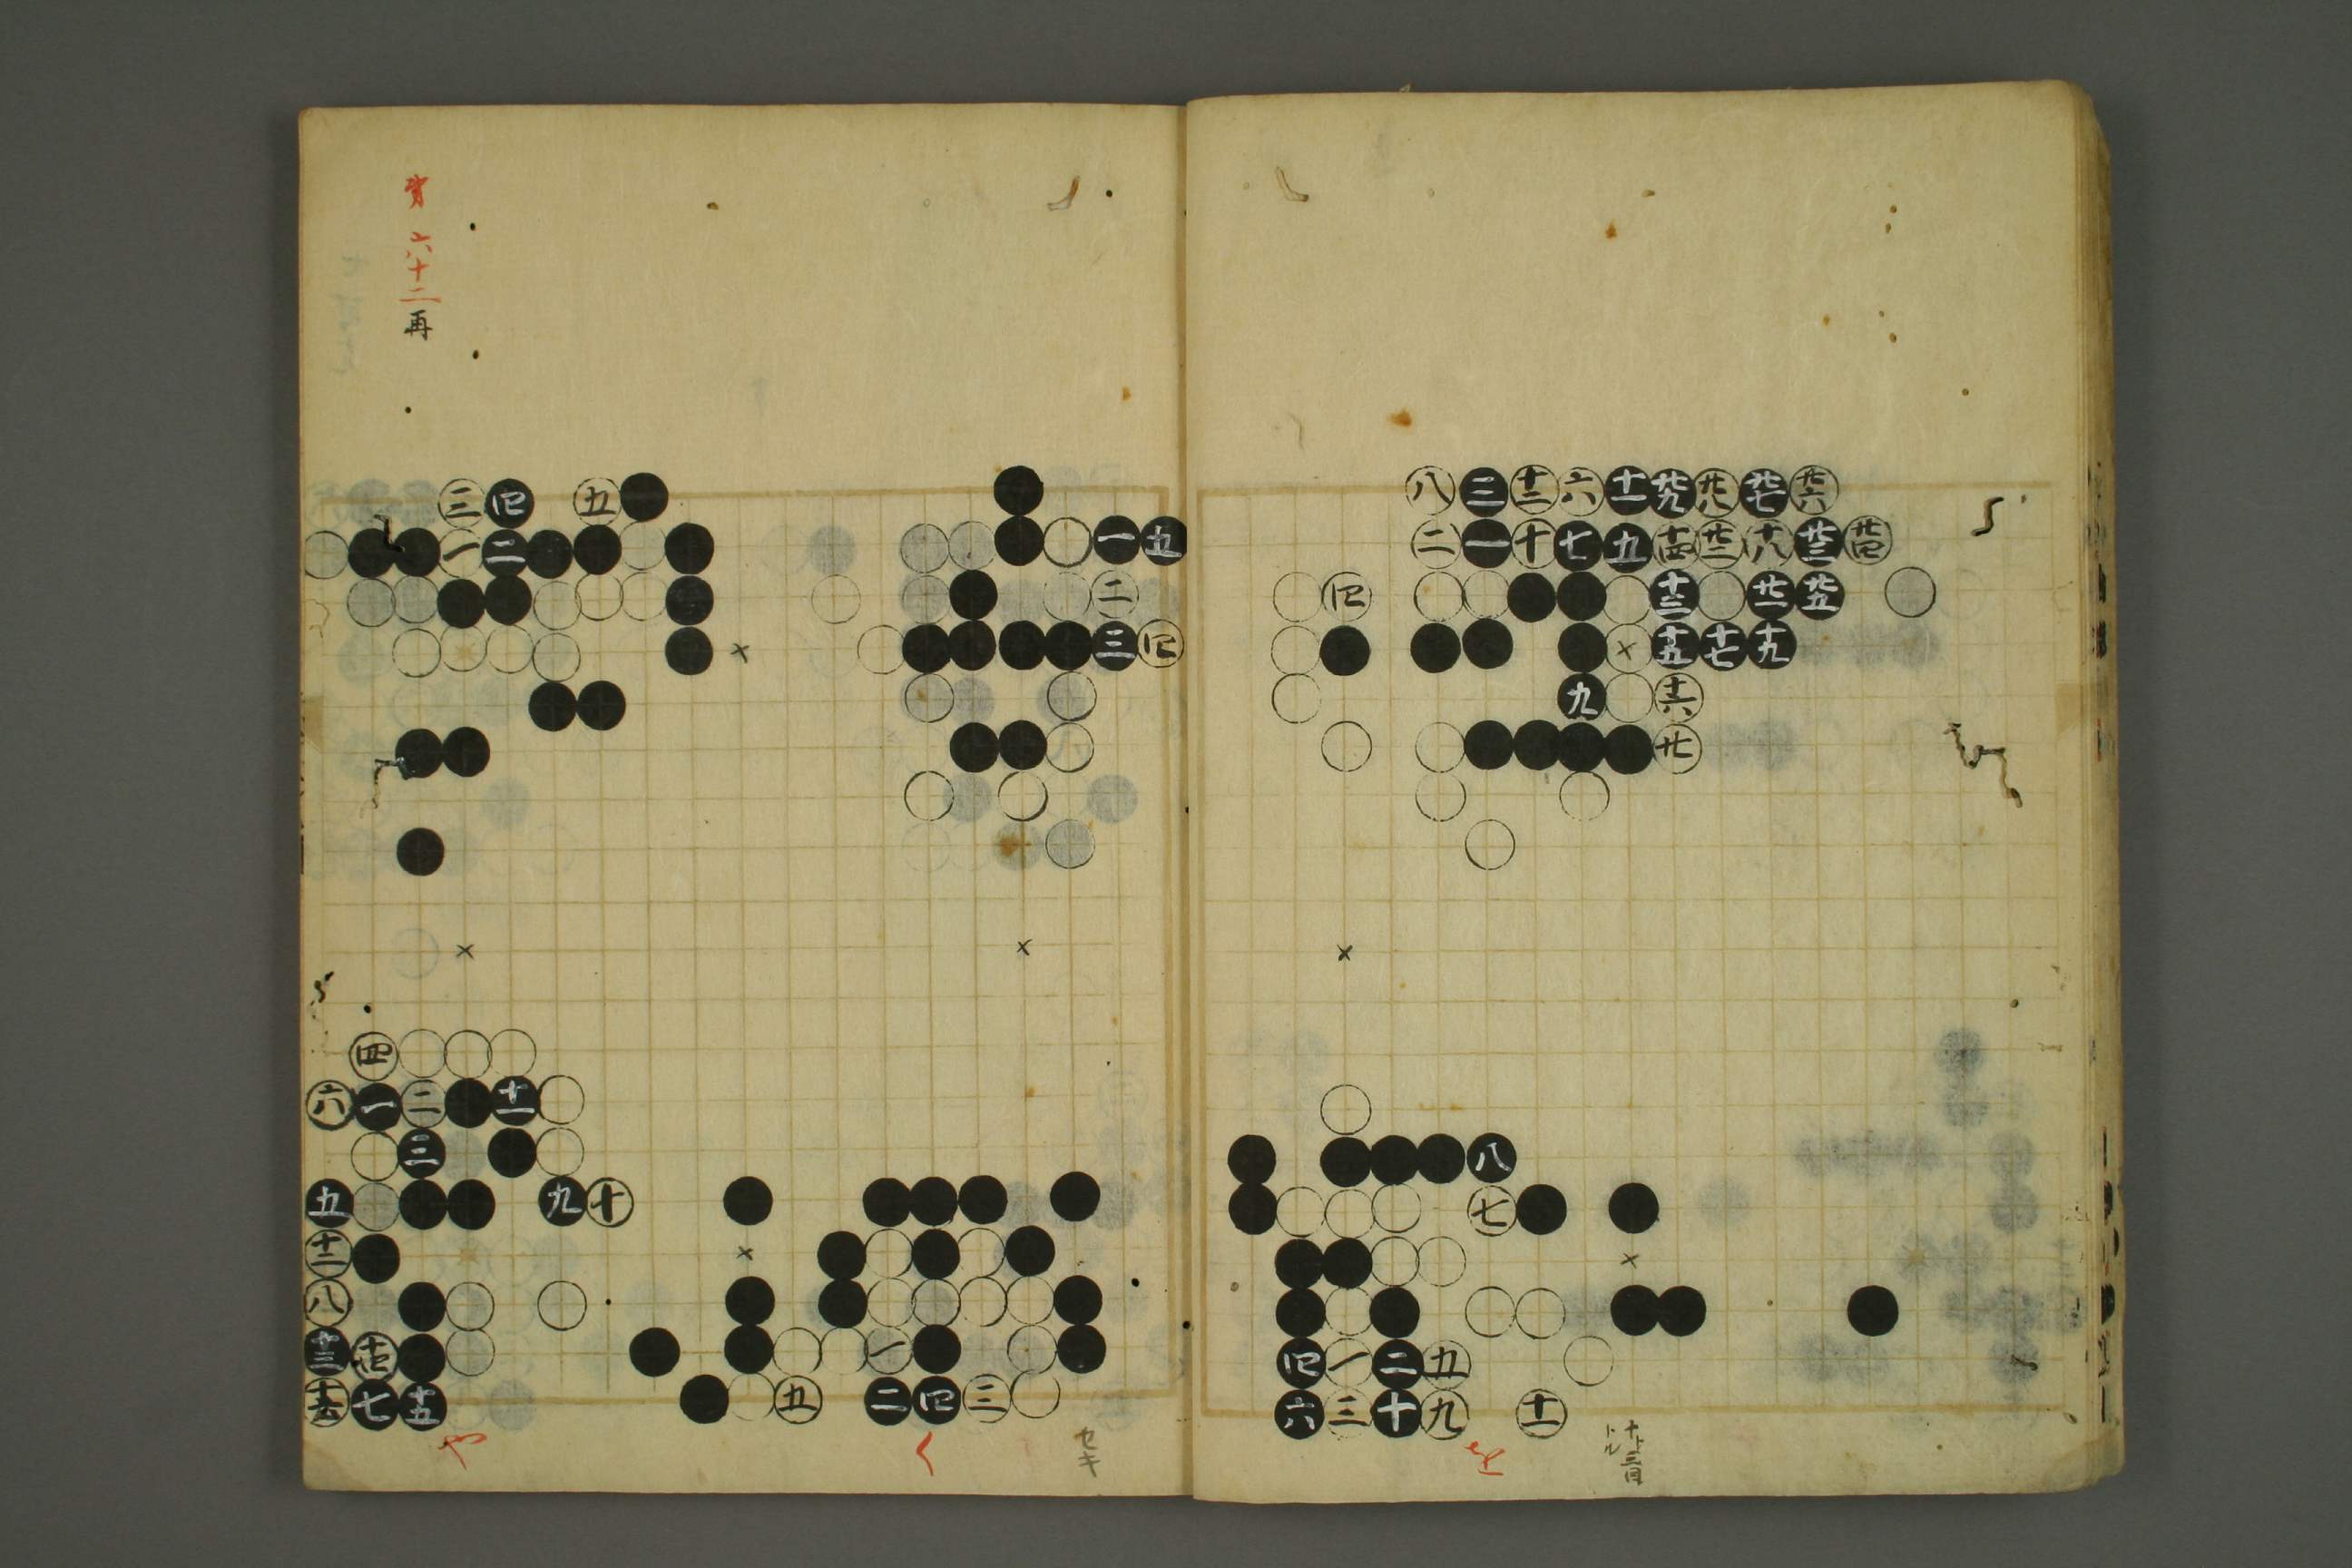 六十二再
三 四 五
一 二
一 五
二
三 四
四
六 一 二 十一
三
五 九 十
十二
八
十三 十四
七 十五
一
五 二 四 三
や
く
セキ
八 三 十二 六 十一 廿九 廿八 廿七 廿六
二 一 十 七 五 十四 廿二 十八 廿三 廿四
四 十三 廿一 廿五
十五 十七 十九
九 十六
八
七
四 一 二 五
六 三 十 九 十一
トル